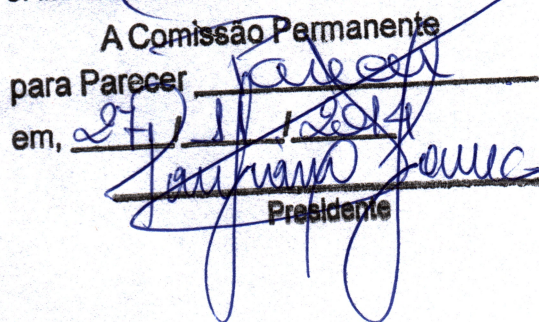 A Comissão Permanente
para Parecer Parecer
em, 27 / 11 / 2014
Presidente